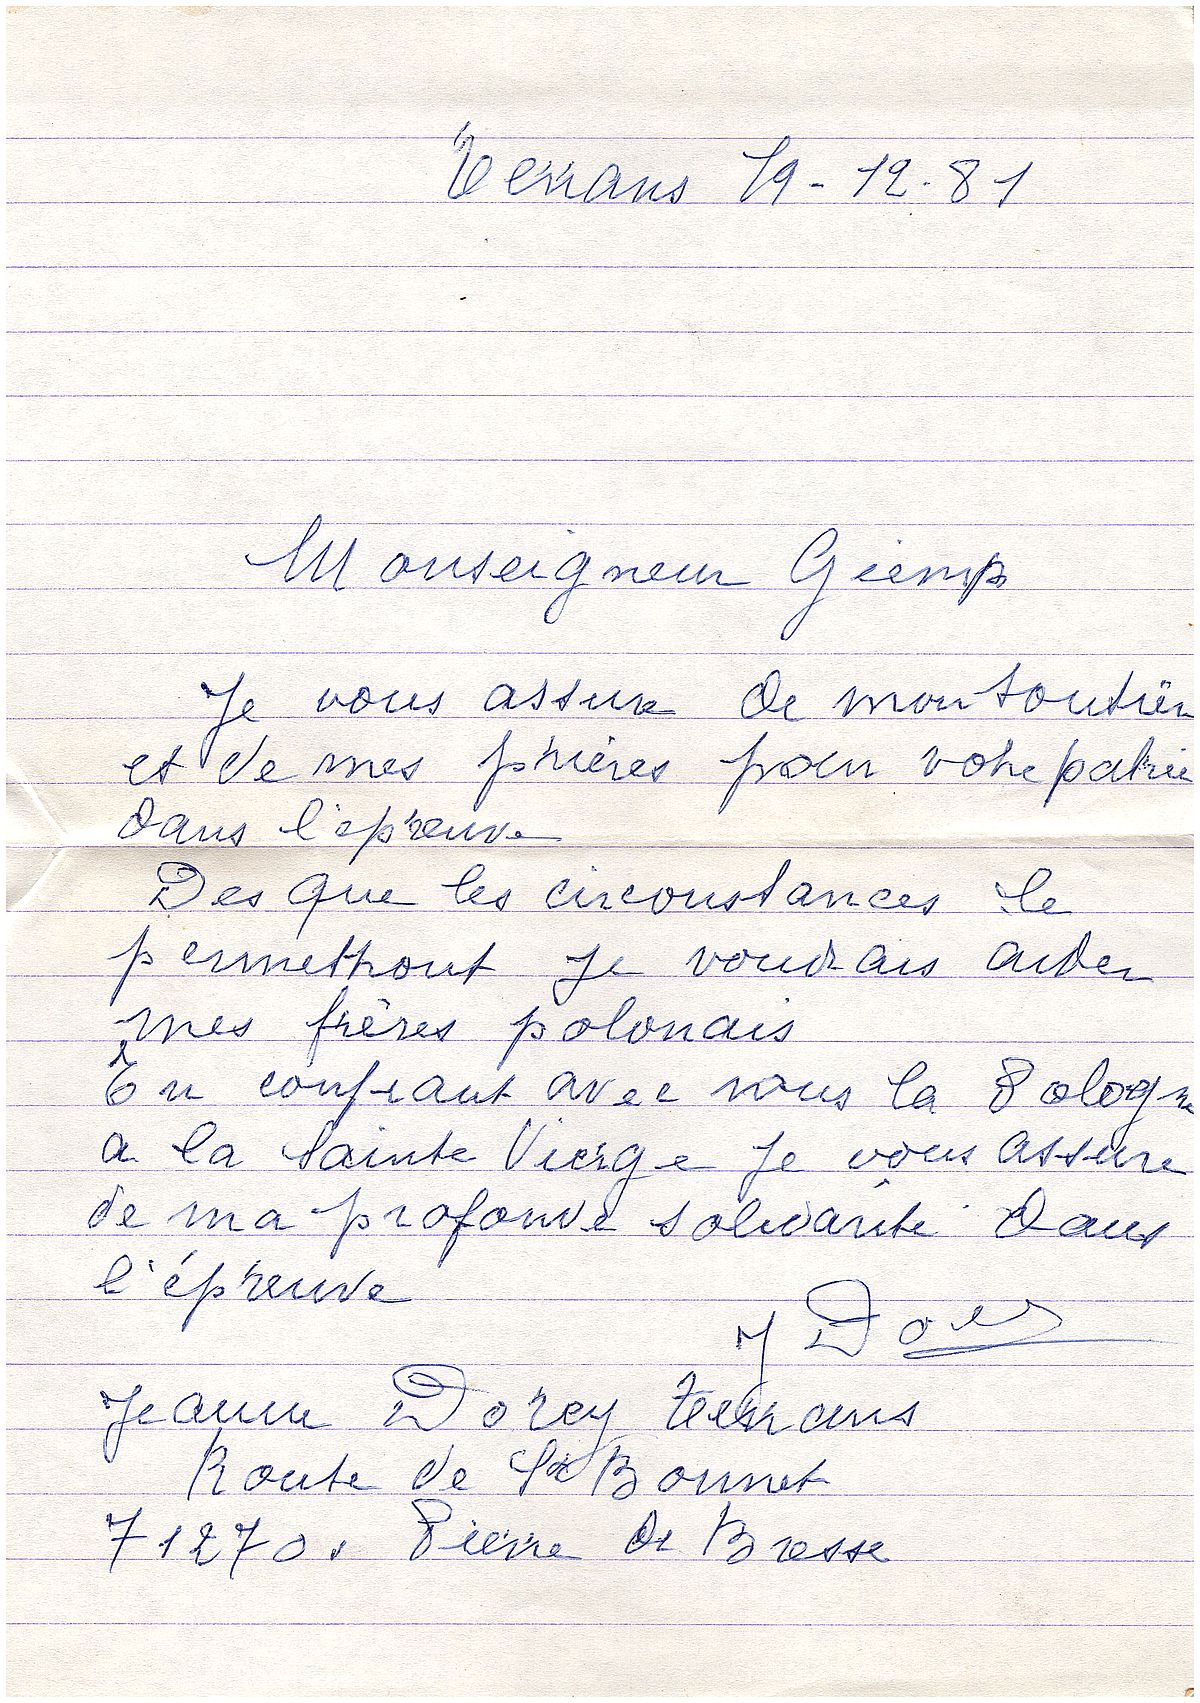 Terrans 19-12-81
Monseigneur Giemp
Je vous assure de mon soutien
et de mes prières pour votre patrie
dans l'épreuve
Des que les circonstances le
permettront je voudrais aider
mes frères polonais
En confiant avec vous la Pologne
a la Sainte Vierge je vous assure
de ma profonde solidarité dans
l'épreuve
J Dorey
Jeanne Dorey Terrans
Route de St Bonnet
71270. Pierre de Bresse